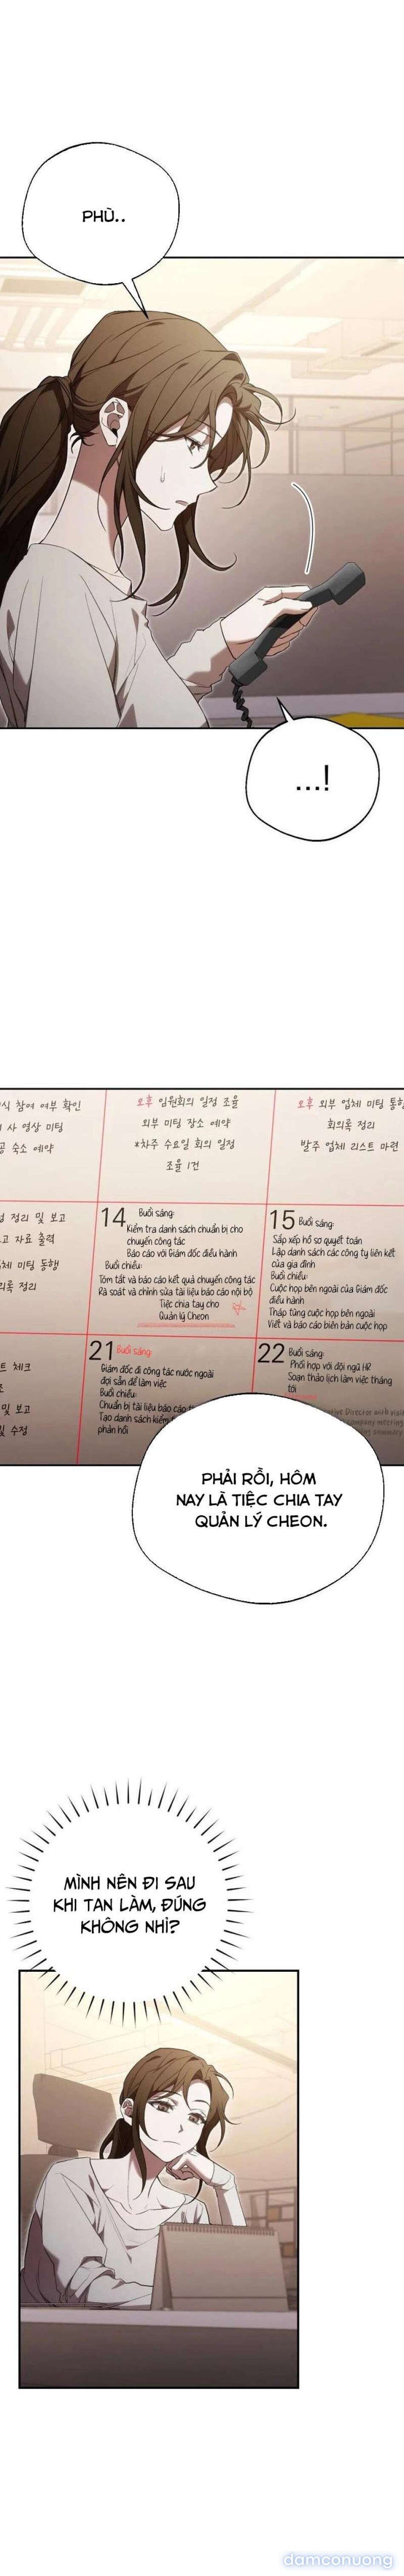 PHÙ..
...!
식 참여 여부 확인
사 영상 미팅
숙소 예약
오후 임원회의 일정 조율
외부 미팅 장소 예약
*차주 수요일 회의 일정
조율 1건
오후 외부 업체 미팅 통행
회의록 정리
발주 업체 리스트 마련
정리 및 보고
자료 출력
업체 미팅 동행
의록 정리
14 Buổi sáng:
Kiểm tra danh sách chuẩn bị cho
chuyến công tác
Báo cáo với Giám đốc điều hành
Buổi chiều:
Tóm tắt và báo cáo kết quả chuyến công tác
Rà soát và chỉnh sửa tài liệu báo cáo nội bộ
Tiệc chia tay cho
Quản lý Cheon
15 Buổi sáng:
Sắp xếp hồ sơ quyết toán
Lập danh sách các công ty liên kết
của gia đình
Buổi chiều:
Cuộc họp bên ngoài của Giám đốc
điều hành
Tháp tùng cuộc họp bên ngoài
Viết và báo cáo biên bản cuộc họp
트 체크
및 보고
및 수정
21 Buổi sáng:
Giám đốc đi công tác nước ngoài
đợi sẵn để làm việc
Buổi chiều:
Chuẩn bị tài liệu báo cáo
Tạo danh sách kiểm
phản hồi
22 Buổi sáng:
Phối hợp với đội ngũ HR
Soạn thảo lịch làm việc tháng
tới
Director with
company meeting
summary
PHẢI RỒI, HÔM
NAY LÀ TIỆC CHIA TAY
QUẢN LÝ CHEON.
MÌNH NÊN ĐI SAU
KHI TAN LÀM, ĐÚNG
KHÔNG NHỈ?
damconuong